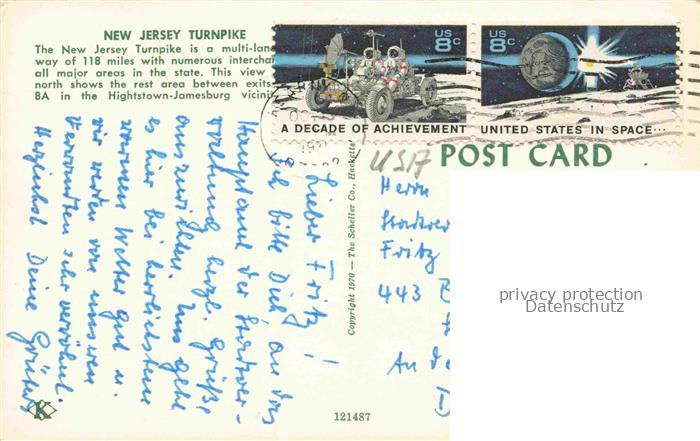 NEW JERSEY TURNPIKE
The New Jersey Turnpike is a multi-lane
way of 118 miles with numerous interchan
all major areas in the state. This view
north shows the rest area between exits
8A in the Hightstown-Jamesburg vicinit
US
8c
A DECADE OF ACHIEVEMENT
US
8c
UNITED STATES IN SPACE...
USA
POST CARD
Lieber Fritz!
Ich bitte Dich an das
Hauptamt der Stadtver-
waltung herzl. Grüße
auszurichten. Uns geht
es hier bei herrlichstem
warmem Wetter gut u.
wir werden von unseren
Verwandten sehr verwöhnt.
Herzlichst Deine
Copyright 1970 — The Scheller Co., Hackette
Herrn
Stadtver
Fritz
443
An de
privacy protection
Datenschutz
K
121487